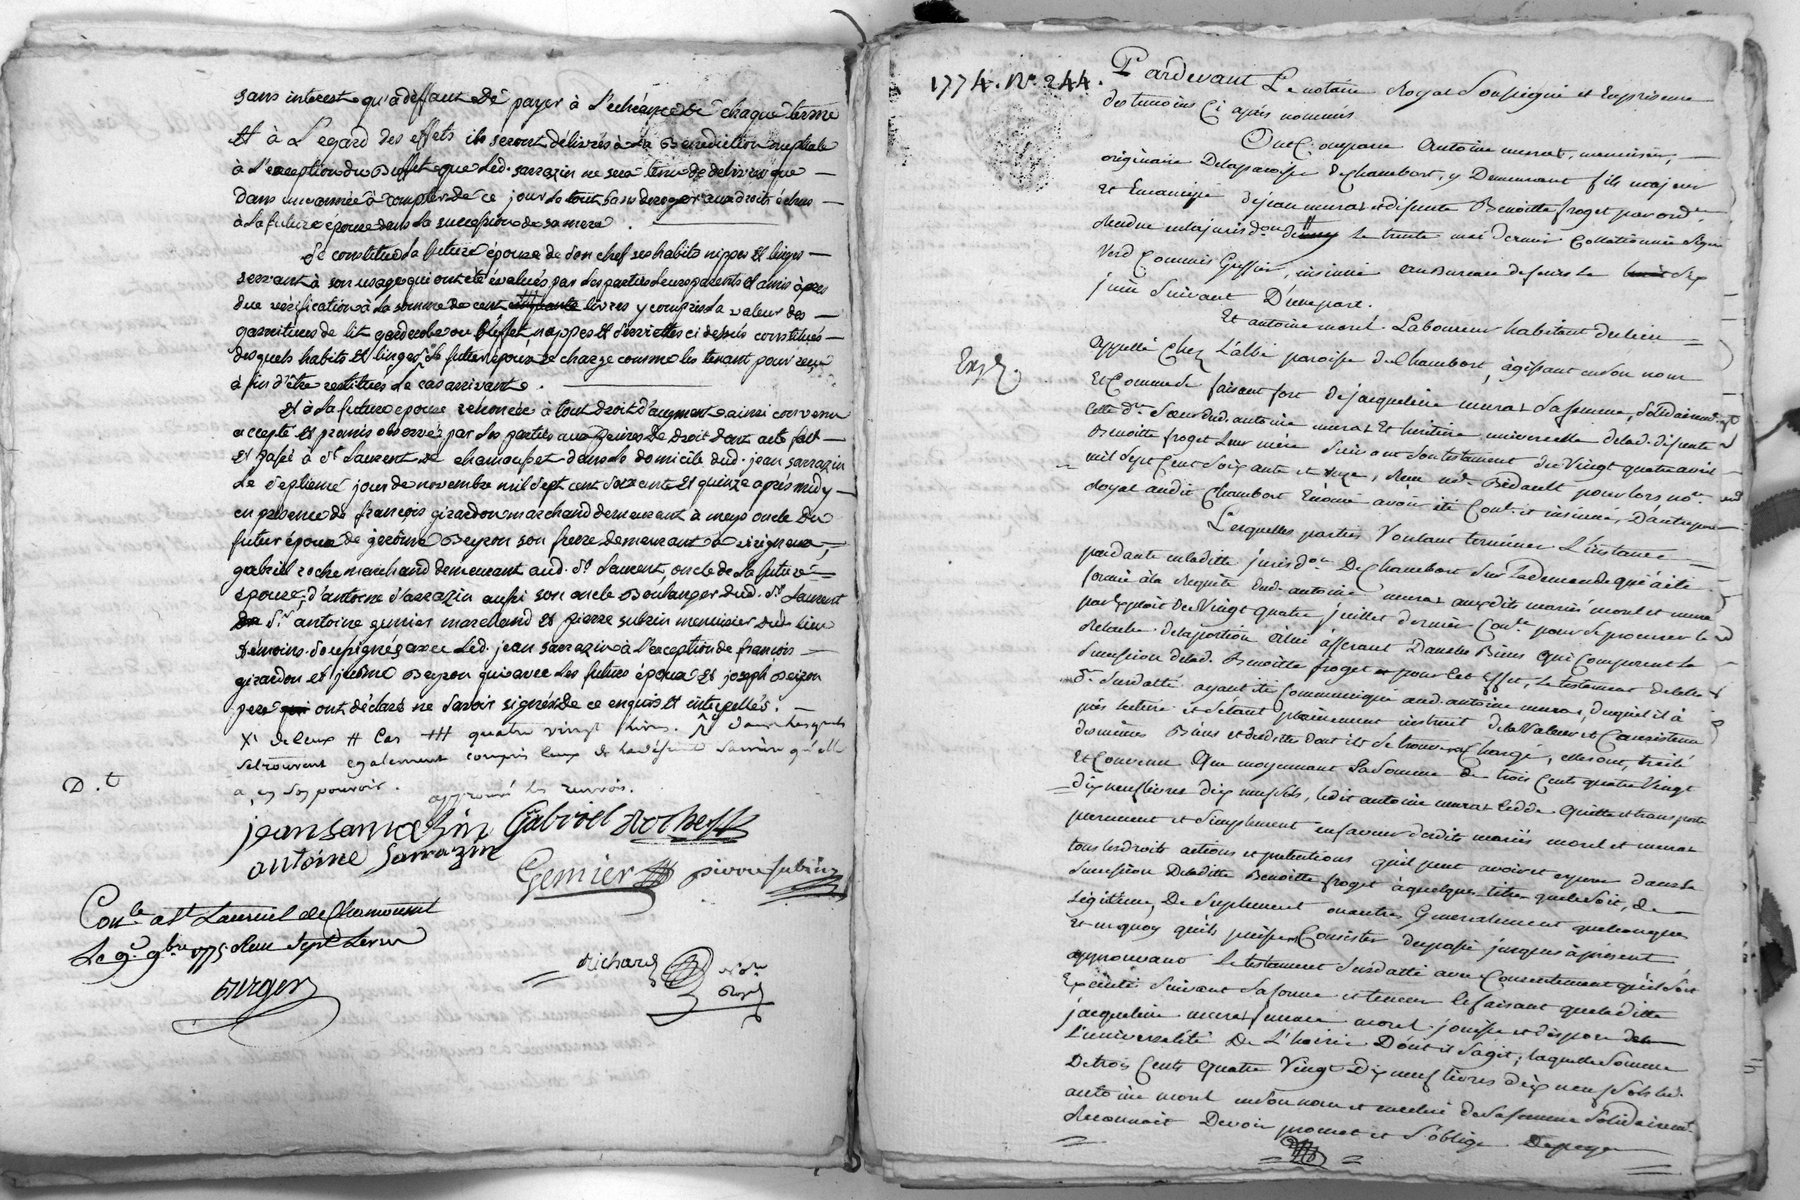 sans interest qu'a deffaut de payer à l'echéance de chaque terme
et à l'egard des effets ils seront délivrés à la Benediction nuptiale
à l'exception du Buffet que led. sarrazin ne sera tenu de delivrer que
dans une année à compter de ce jour le tout sans deroger aux droits échus
à la future épouse dans la succession de sa mere.
Se constitue la future épouse de son chef ses habits nippes et linges
servant à son usage qui ont été évalués par les parties leurs parents et amis après
due vérification à la somme de cent livres y compris la valeur des
garnitures de lit garderobe ou Buffet, nappes et serviettes ci dessus constitués
desquels habits et linges le futur époux se charge comme les tenant pour reçu
à fins d'être restitués le cas arrivant.
et à la future epouse renoncée à tout droit d'augment ainsi convenu
accepté et promis observer par les parties aux peines de droit dont acte fait
et passé à St Laurent de chamousset dans le domicile dud. jean sarrazin
le septieme jour de novembre mil sept cent soixante et quinze après midy
en presence de françois girardon marchand demeurant à meys oncle du
futur époux de jerôme Beyron son frere demeurant à virigneux,
gabriel roche marchand demeurant aud. St Laurent, oncle de la future
épouse, d'antoine sarrazin aussi son oncle Boulanger dud. St Laurent
Sr antoine gemier marchand et pierre subrin menuisier dud. lieu
témoins soussignés avec led. jean sarrazin à l'exception de françois
girardon et jérôme Beyron qui avec les futurs époux et joseph Beyron
pere ont déclaré ne savoir signer de ce enquis et interpellés.
X de leux # Cas ## quatre vingt livres. dans lesquels
se trouvent egalement compris ceux de la défunte sa mère qu'elle
a en son pouvoir. approuvé les renvois.
D.t
jean sarrazin Gabriel Roche
antoine Sarrazin
Gemier pierre subrin
Conlé a St Laurent de Chamousset
Le 9e 9bre 1775 Reçu sept livres
Richard nore Royal
1774. No 244.
Pardevant Le notaire Royal Soussigné et En présence
des temoins Ci après nommés
Out Comparu Antoine murat, menuisier,
originaire De la paroisse de Chambost, y Demeurant fils majeur
et Emancipé de jean murat et defunte Benoitte froget par orde
Rendue en la jurisdon de le trente mai dernier Collationnée Signé
Verd Commis Greffier, insinué au Bureau de feurs le six
juin Suivant D'une part.
Et antoine morel Laboureur habitant du lieu
appellé Chez L'albi paroisse de Chambost, agissant en son nom
Exp.
Et Comme se faisant fort de jacqueline murat sa femme, solidairemt
Cette dre Soeur dud. antoine murat Et heritiere universelle de lad. defunte
Benoitte froget Leur mère Suivant son testament du Vingt quatre avril
mil sept Cent Soixante et onze, Reçu me Bedault pour lors nore
Royal audit Chambost Enoncé avoir été Conlé et insinué, D'autre part
Lesquelles parties Voulant terminer L'instance
pendante en laditte jurisdon De Chambost Sur la demande qui a été
formée à la Requête dud. antoine murat auxdits mariés morel et murat
par Exploit du Vingt quatre juillet dernier Conlé pour se procurer le
Relache de la portion à lui afferant Dans les Biens qui Composent la
Succession de lad. Benoitte froget pour Cet Effet, le testament de lade
de Susdatté ayant été Communiqué aud. antoine murat, duquel il a
pris lecture et s'étant pleinement instruit de la Valeur et Consistance
des mêmes Biens et des dettes dont ils se trouvent Chargé, elles ont traité
Et Convenu Que moyennant la Somme de trois Cents quatre Vingt
dix neuf livres dix neuf sols, ledit antoine murat Cedde Quitte et transporte
purement et simplement en faveur desdits mariés morel et murat
tous les droits actions et pretentions qu'il peut avoir et exercer dans la
Succession De laditte Benoitte froget à quelques titre que le soit, de
Légitime, De suplement ou autres Généralement quelconques
Et en quoy qu'ils puissent Consister du passé jusques à présent
approuvant le testament Susdatté avec Consentement qu'il soit
Exécuté Suivant sa forme et teneur Ce faisant que laditte
jacqueline murat femme morel jouisse et dispose de
l'universalité De L'hoirie Dont il s'agit; laquelle Somme
De trois Cents Quatre Vingt Dix neuf livres dix neuf sols led.
antoine morel en son nom et en celui de sa femme Solidairemt
Reconnoit Devoir promet et S'oblige De payer